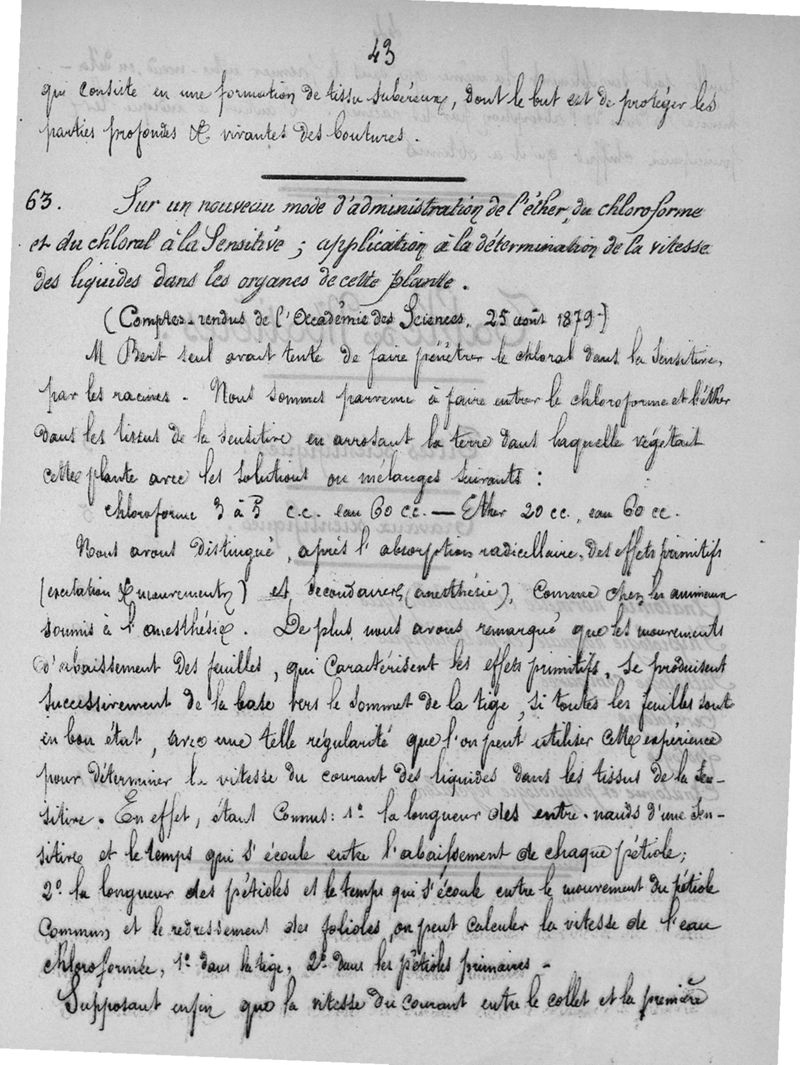 43
qui consiste en une formation de tissu subéreux, dont le but est de protéger les
parties profondes & vivantes des boutures.
63. Sur un nouveau mode d'administration de l'éther, du chloroforme
et du chloral à la Sensitive ; application à la détermination de la vitesse
des liquides dans les organes de cette plante.
(Comptes-rendus de l'Académie des Sciences. 25 août 1879-)
M Bert seul avait tenté de faire pénétrer le chloral dans la Sensitive,
par les racines. Nous sommes parvenu à faire entrer le chloroforme et l'éther
dans les tissus de la sensitive en arrosant la terre dans laquelle végétait
cette plante avec les solutions ou mélanges suivants :
chloroforme 3 à 5 c.c. eau 60 cc. — Ether 20 cc, eau 60 cc.
Nous avons distingué, après l'absorption radicellaire, des effets primitifs
(excitation & mouvements) et secondaires (anesthésie), comme chez les animaux
soumis à l'anesthésie. De plus nous avons remarqué que les mouvements
d'abaissement des feuilles, qui caractérisent les effets primitifs, se produisent
successivement de la base vers le sommet de la tige, si toutes les feuilles sont
en bon état, avec une telle régularité que l'on peut utiliser cette expérience
pour déterminer la vitesse du courant des liquides dans les tissus de la Sen-
sitive. En effet, étant connus : 1º la longueur des entre-nœuds d'une Sen-
sitive et le temps qui s'écoule entre l'abaissement de chaque pétiole;
2º la longueur des pétioles et le temps qui s'écoule entre le mouvement du pétiole
commun et le redressement des folioles, on peut calculer la vitesse de l'eau
chloroformée, 1º dans la tige, 2º dans les pétioles primaires -
Supposant enfin que la vitesse du courant entre le collet et la première